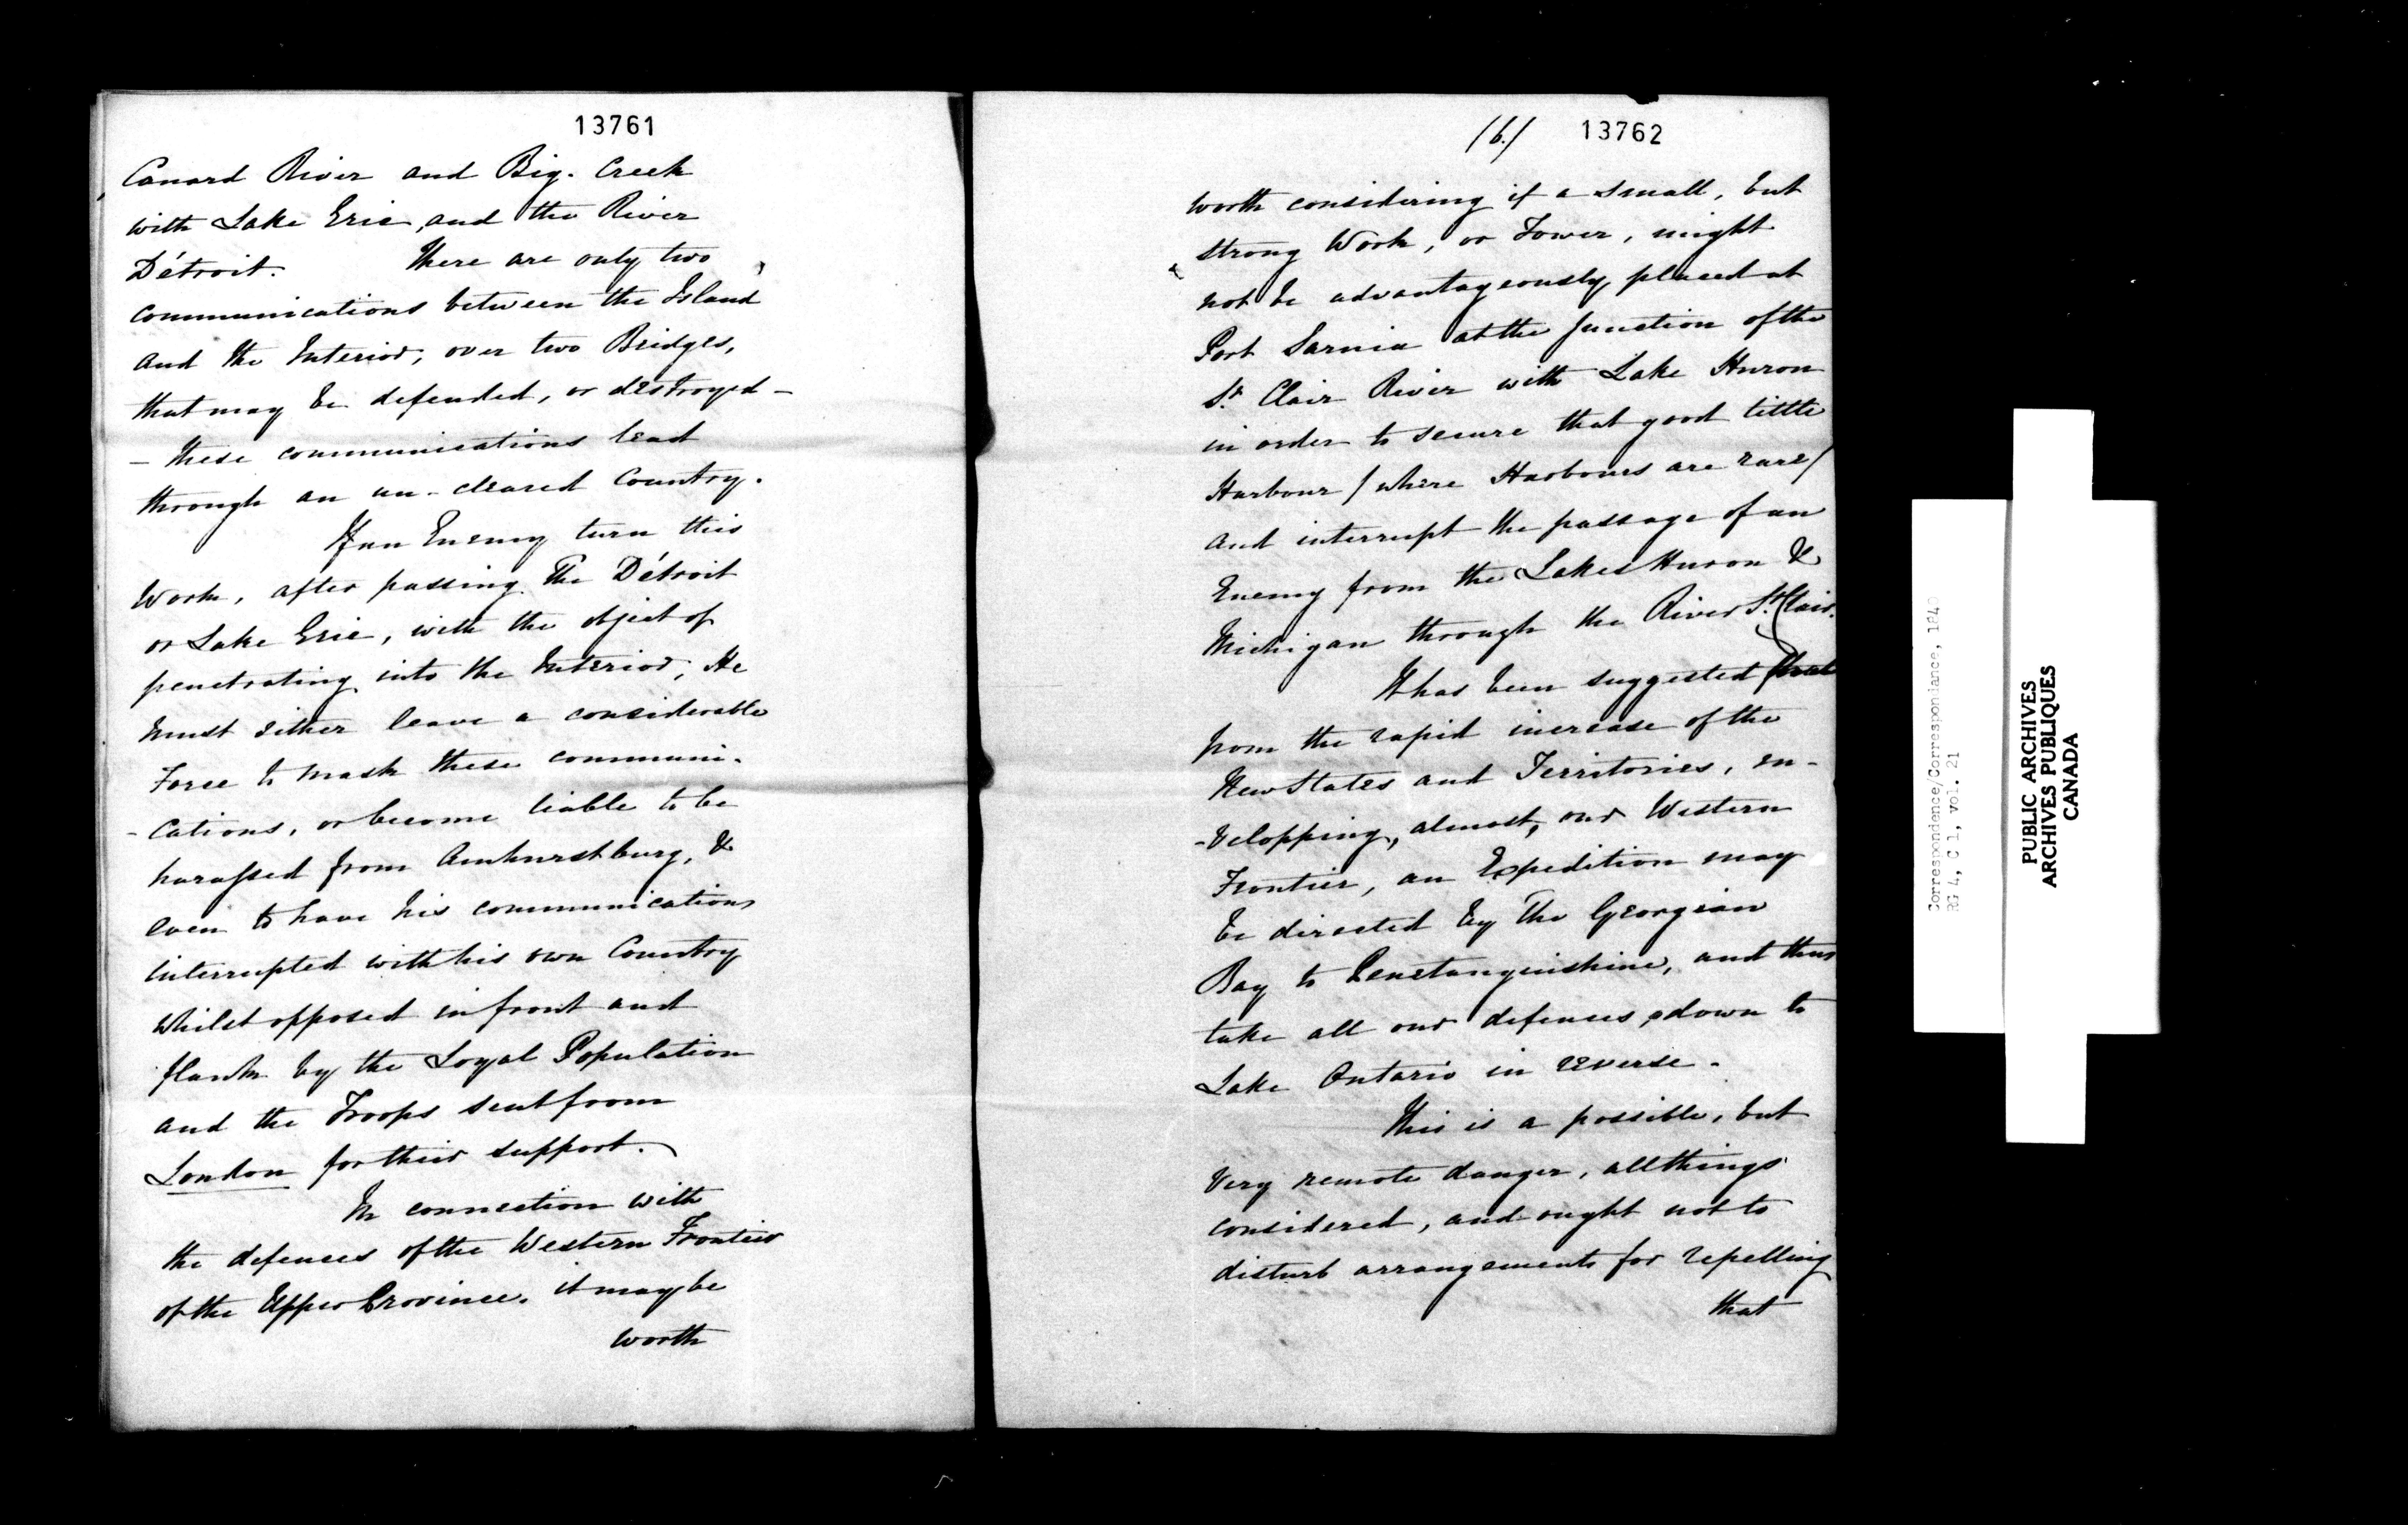 13761
Canard River and Big. Creek
with Lake Erie, and the River
Détroit. There are only two
communications between the Island
and the Interior, over two Bridges,
that may be defended, or destroyed -
- these communications lead
through an un-cleared Country.
If an Enemy turn this
Work, after passing The Détroit
or Lake Erie, with the object of
penetrating into the Interior, He
must either leave a considerable
Force to mask these communi-
- cations, or become liable to be
harassed from Amhurstburg, &
even to have his communications
interrupted with his own Country
whilst opposed in front and
flank by the Loyal Population
and the Troops sent from
London for their support.
In connection with
the defences of the Western Frontier
of the Upper Province, it may be
worth
(6.) 13762
worth considering if a small, but
strong Work, or Tower, might
not be advantageously placed at
Port Sarnia at the junction of the
St. Clair River with Lake Huron
in order to secure that good little
Harbour / where Harbours are rare /
and interrupt the passage of an
Enemy from the Lakes Huron &
Michigan through the River St. Clair.
It has been suggested that
from the rapid increase of the
New States and Territories, en-
-velopping, almost, our Western
Frontier, an Expedition may
be directed by The Georgian
Bay to Penetanguishine, and thus
take all our defences down to
Lake Ontario in reverse.
This is a possible, but
very remote danger, all things
considered, and ought not to
disturb arrangements for repelling
that
Correspondence/Correspondance, 1840
RG 4, C 1, vol. 21
PUBLIC ARCHIVES
ARCHIVES PUBLIQUES
CANADA